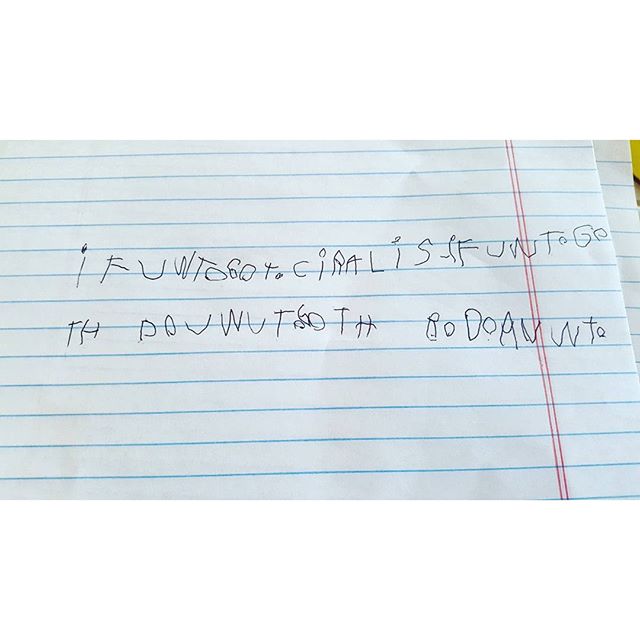 iFUWTOGOTO CiRALiS iFUWTOGO
TH DOUWUTOGOTH BODOAN WTO